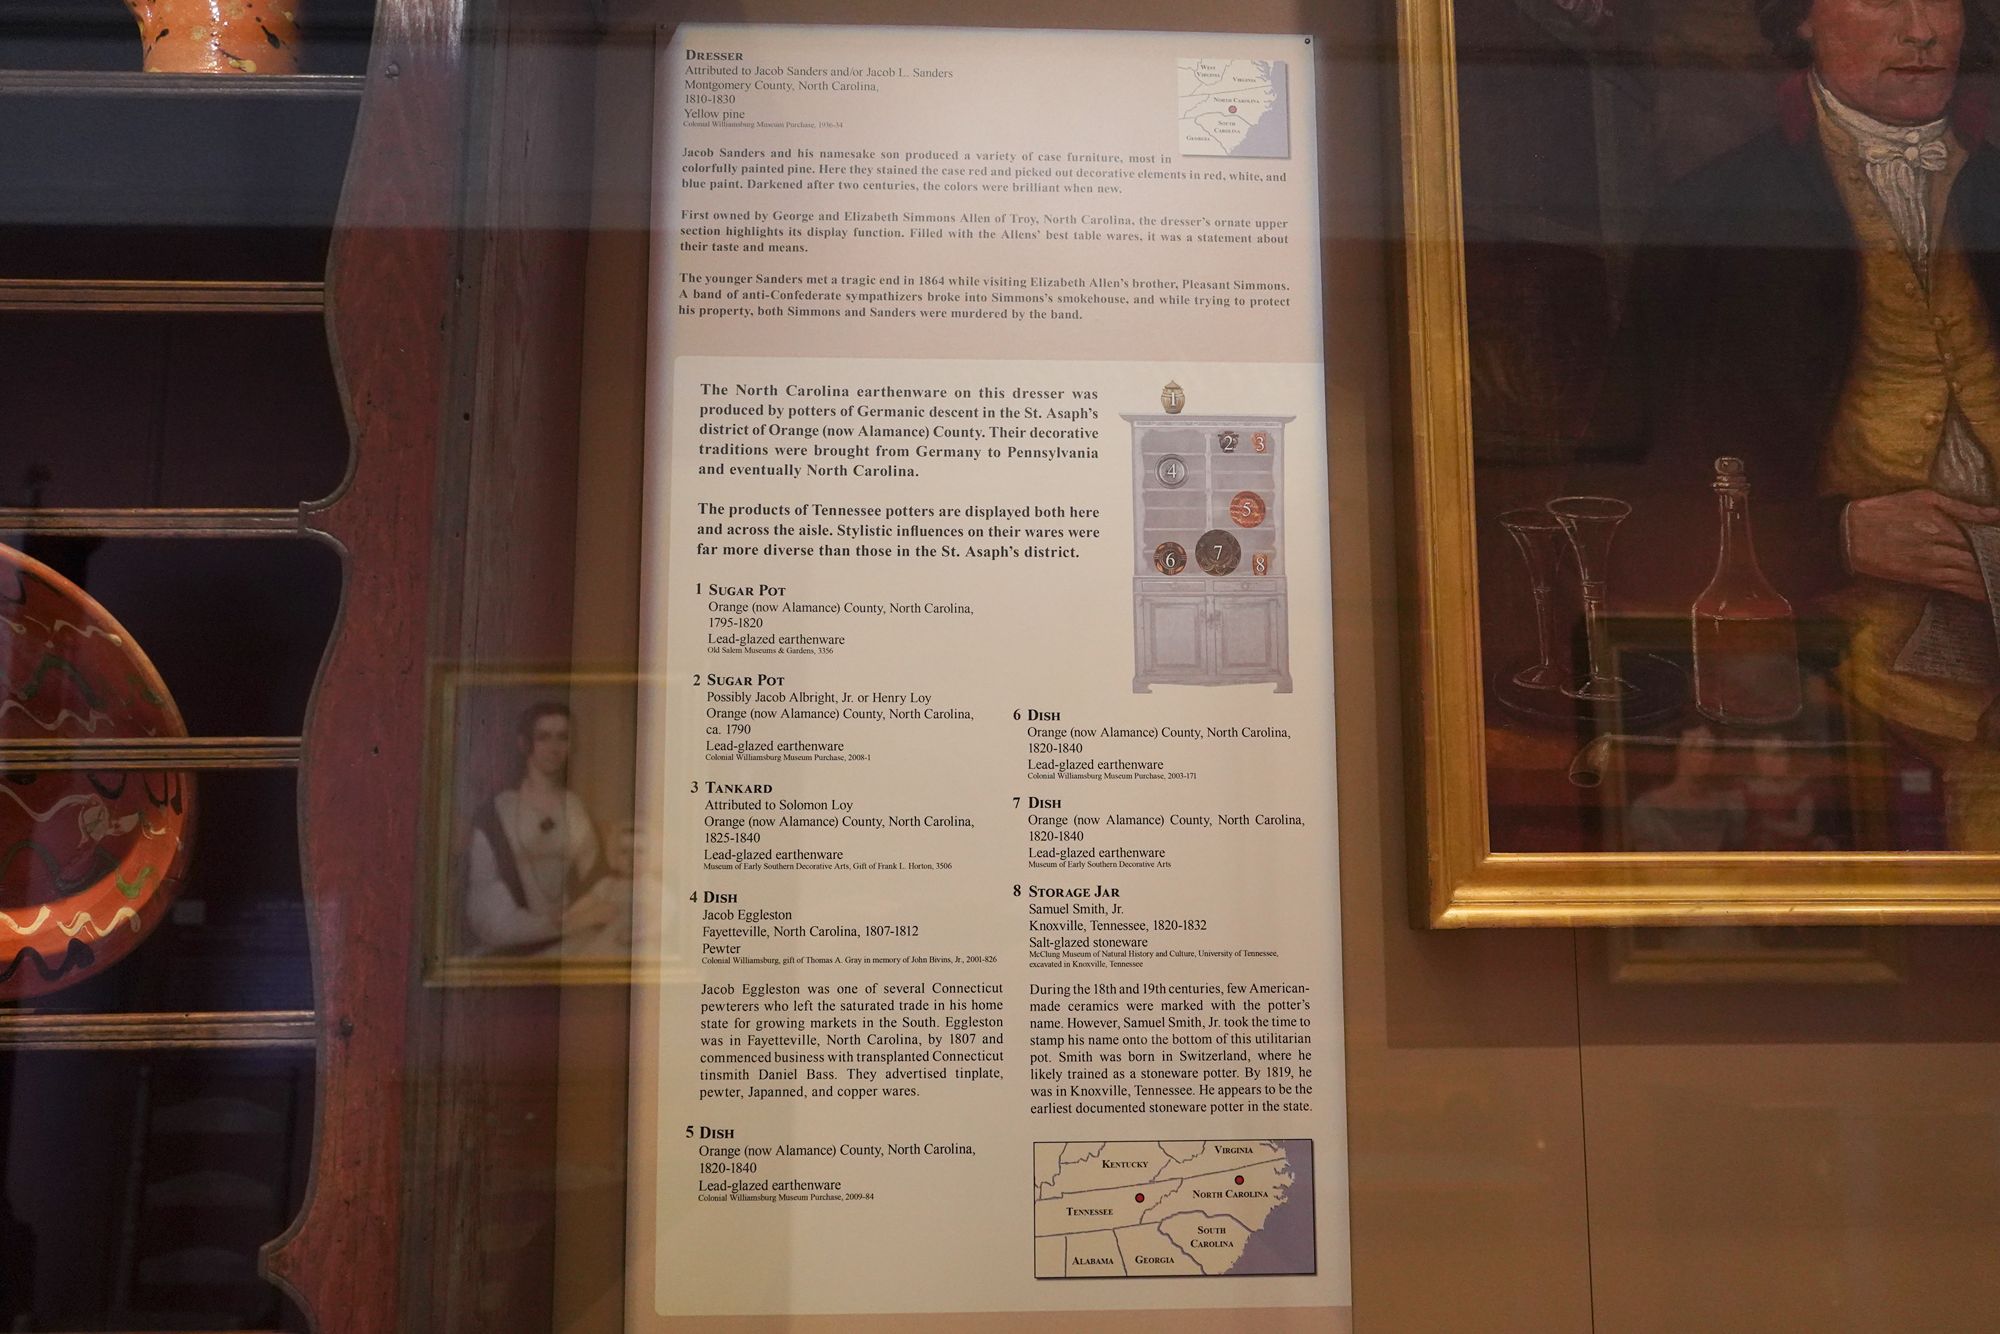 DRESSER
Attributed to Jacob Sanders and/or Jacob L. Sanders
Montgomery County, North Carolina,
1810-1830
Yellow pine
Colonial Williamsburg Museum Purchase, 1936-34
WEST
VIRGINIA
VIRGINIA
NORTH CAROLINA
SOUTH
CAROLINA
GEORGIA
Jacob Sanders and his namesake son produced a variety of case furniture, most in
colorfully painted pine. Here they stained the case red and picked out decorative elements in red, white, and
blue paint. Darkened after two centuries, the colors were brilliant when new.
First owned by George and Elizabeth Simmons Allen of Troy, North Carolina, the dresser's ornate upper
section highlights its display function. Filled with the Allens' best table wares, it was a statement about
their taste and means.
The younger Sanders met a tragic end in 1864 while visiting Elizabeth Allen's brother, Pleasant Simmons.
A band of anti-Confederate sympathizers broke into Simmons's smokehouse, and while trying to protect
his property, both Simmons and Sanders were murdered by the band.
The North Carolina earthenware on this dresser was
produced by potters of Germanic descent in the St. Asaph's
district of Orange (now Alamance) County. Their decorative
traditions were brought from Germany to Pennsylvania
and eventually North Carolina.
The products of Tennessee potters are displayed both here
and across the aisle. Stylistic influences on their wares were
far more diverse than those in the St. Asaph's district.
1
2 3
4
5
6 7 8
1 SUGAR POT
Orange (now Alamance) County, North Carolina,
1795-1820
Lead-glazed earthenware
Old Salem Museums & Gardens, 3356
2 SUGAR POT
Possibly Jacob Albright, Jr. or Henry Loy
Orange (now Alamance) County, North Carolina,
ca. 1790
Lead-glazed earthenware
Colonial Williamsburg Museum Purchase, 2008-1
3 TANKARD
Attributed to Solomon Loy
Orange (now Alamance) County, North Carolina,
1825-1840
Lead-glazed earthenware
Museum of Early Southern Decorative Arts, Gift of Frank L. Horton, 3506
4 DISH
Jacob Eggleston
Fayetteville, North Carolina, 1807-1812
Pewter
Colonial Williamsburg, gift of Thomas A. Gray in memory of John Bivins, Jr., 2001-826
Jacob Eggleston was one of several Connecticut
pewterers who left the saturated trade in his home
state for growing markets in the South. Eggleston
was in Fayetteville, North Carolina, by 1807 and
commenced business with transplanted Connecticut
tinsmith Daniel Bass. They advertised tinplate,
pewter, Japanned, and copper wares.
5 DISH
Orange (now Alamance) County, North Carolina,
1820-1840
Lead-glazed earthenware
Colonial Williamsburg Museum Purchase, 2009-84
6 DISH
Orange (now Alamance) County, North Carolina,
1820-1840
Lead-glazed earthenware
Colonial Williamsburg Museum Purchase, 2003-171
7 DISH
Orange (now Alamance) County, North Carolina,
1820-1840
Lead-glazed earthenware
Museum of Early Southern Decorative Arts
8 STORAGE JAR
Samuel Smith, Jr.
Knoxville, Tennessee, 1820-1832
Salt-glazed stoneware
McClung Museum of Natural History and Culture, University of Tennessee,
excavated in Knoxville, Tennessee
During the 18th and 19th centuries, few American-
made ceramics were marked with the potter's
name. However, Samuel Smith, Jr. took the time to
stamp his name onto the bottom of this utilitarian
pot. Smith was born in Switzerland, where he
likely trained as a stoneware potter. By 1819, he
was in Knoxville, Tennessee. He appears to be the
earliest documented stoneware potter in the state.
KENTUCKY
VIRGINIA
NORTH CAROLINA
TENNESSEE
SOUTH
CAROLINA
ALABAMA
GEORGIA